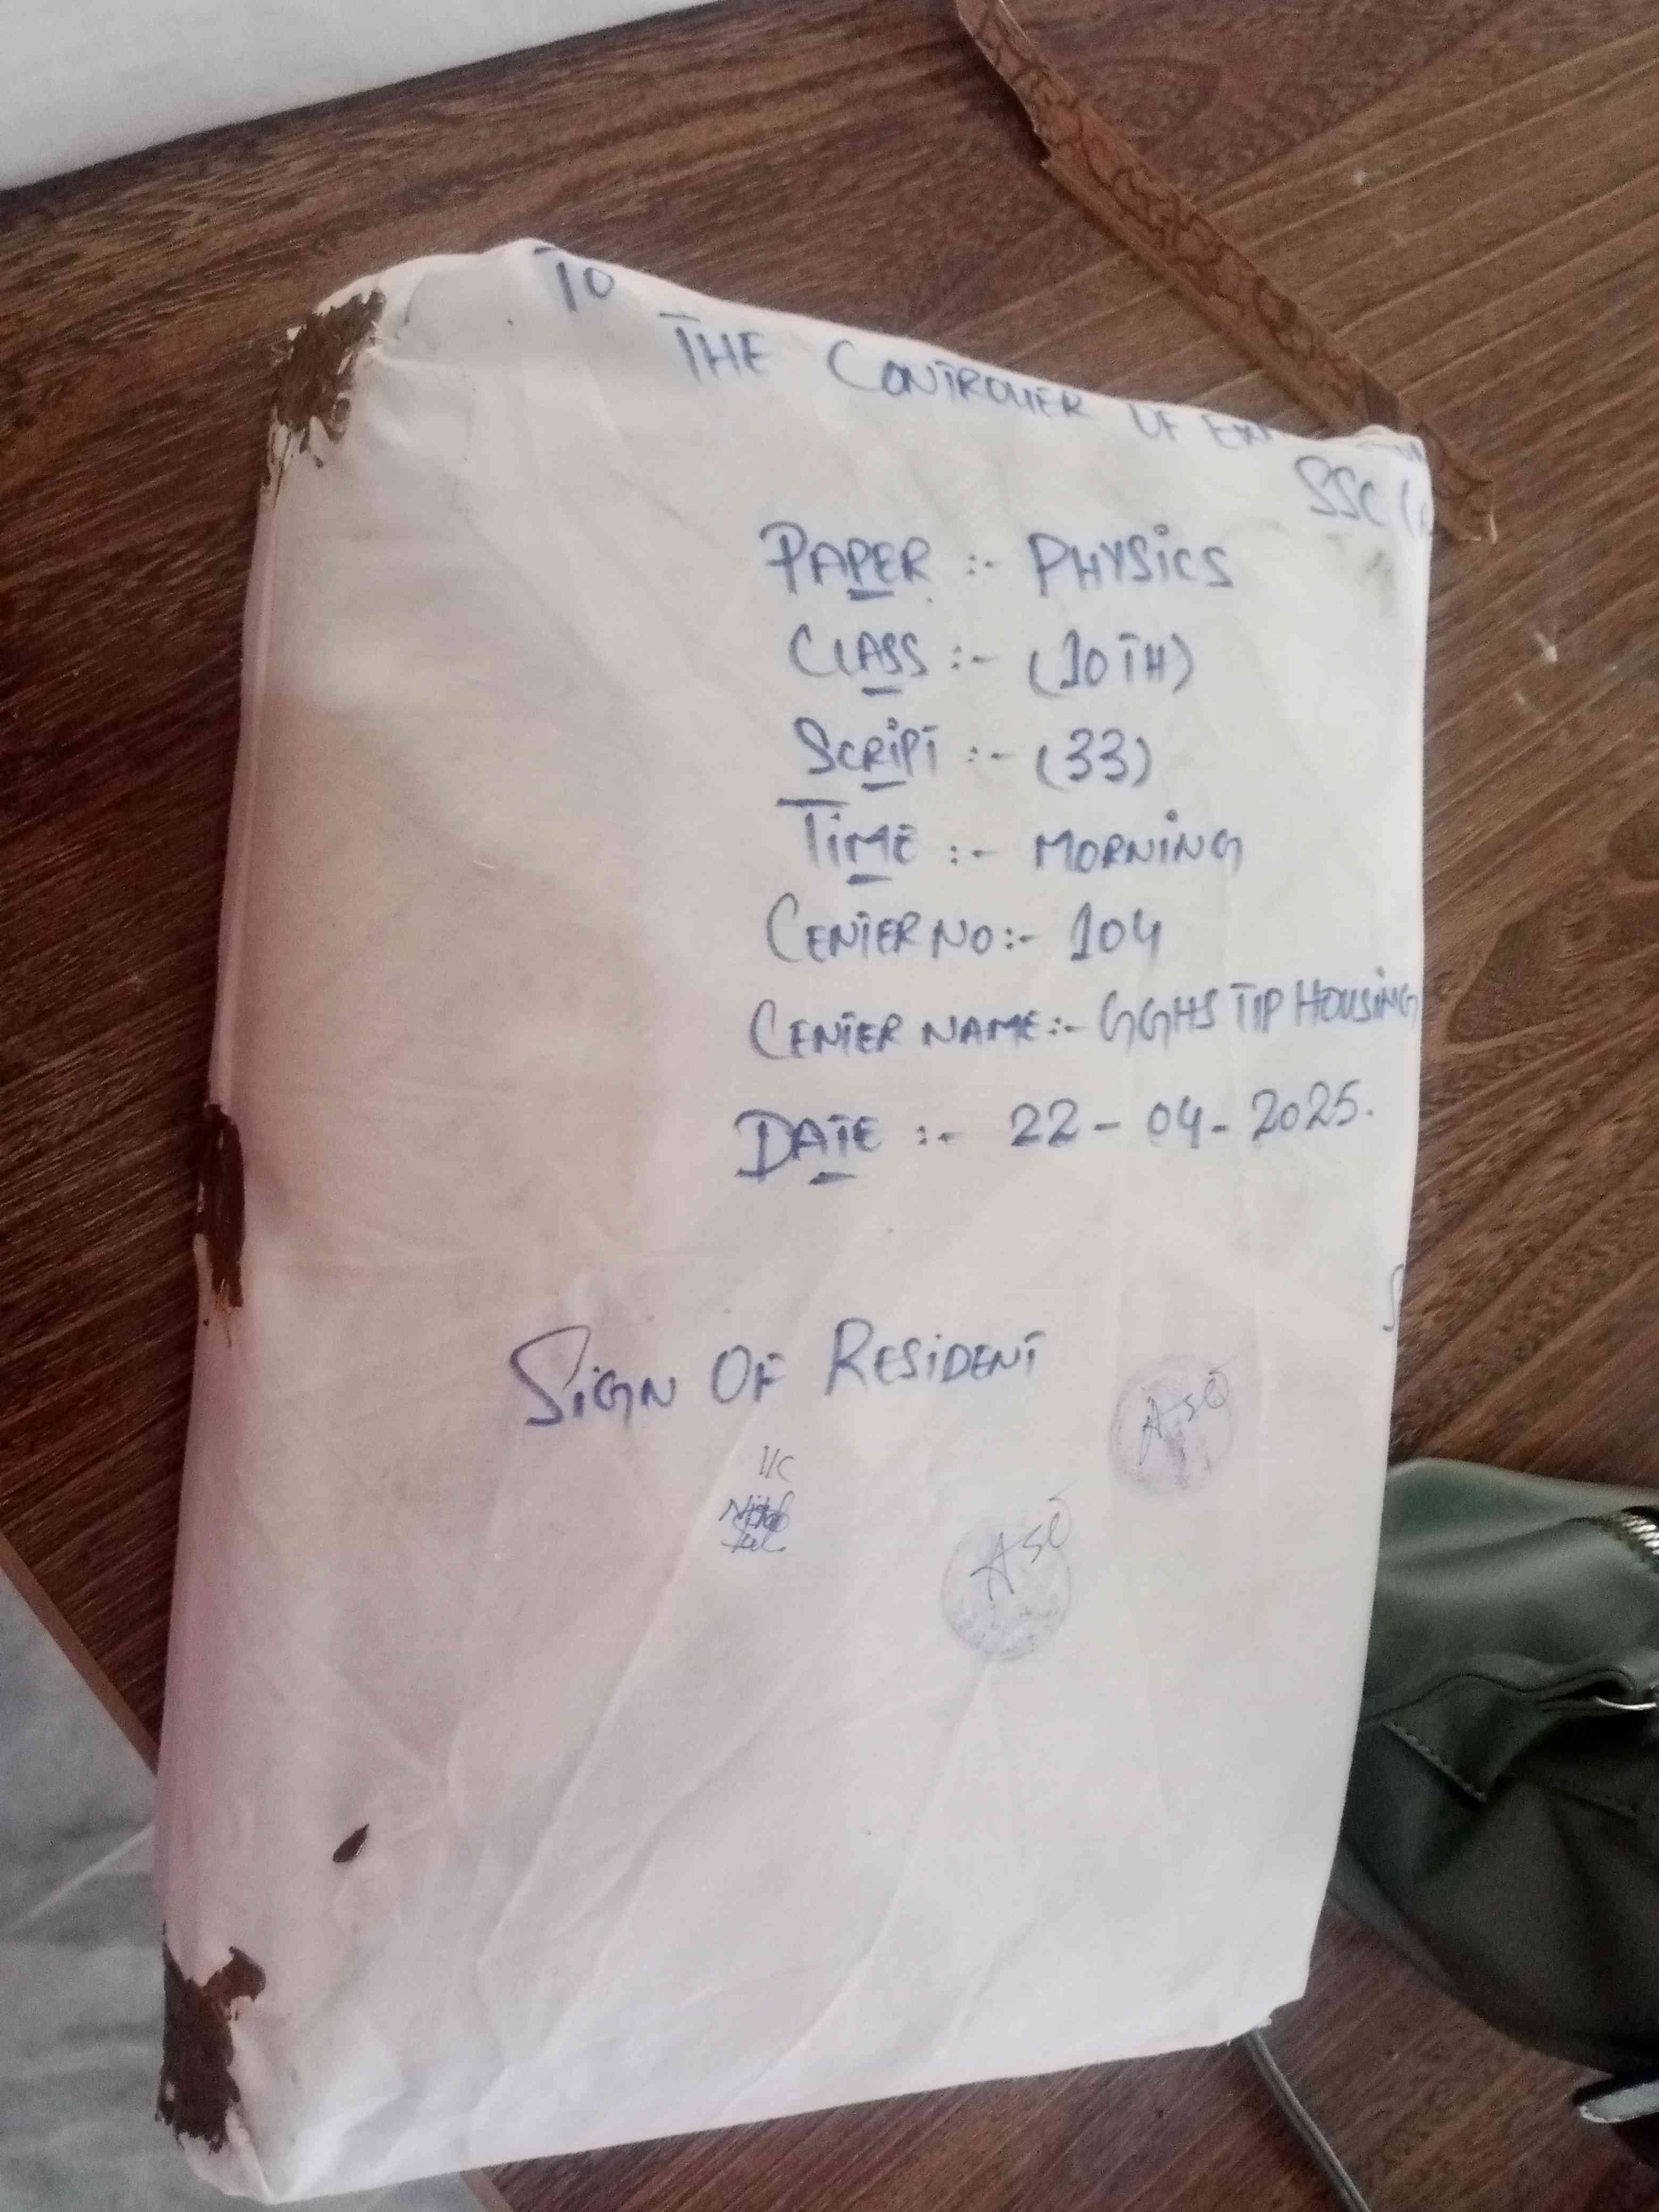 TO
THE CONTROLLER OF
SSC
PAPER :- PHYSICS
CLASS :- (10TH)
SCRIPT :- (33)
TIME :- MORNING
CENTER NO:- 104
CENTER NAME:- GGHS TIP HOUSING
DATE :- 22-04-2025.
SIGN OF RESIDENT
ASO
I/C
ASO